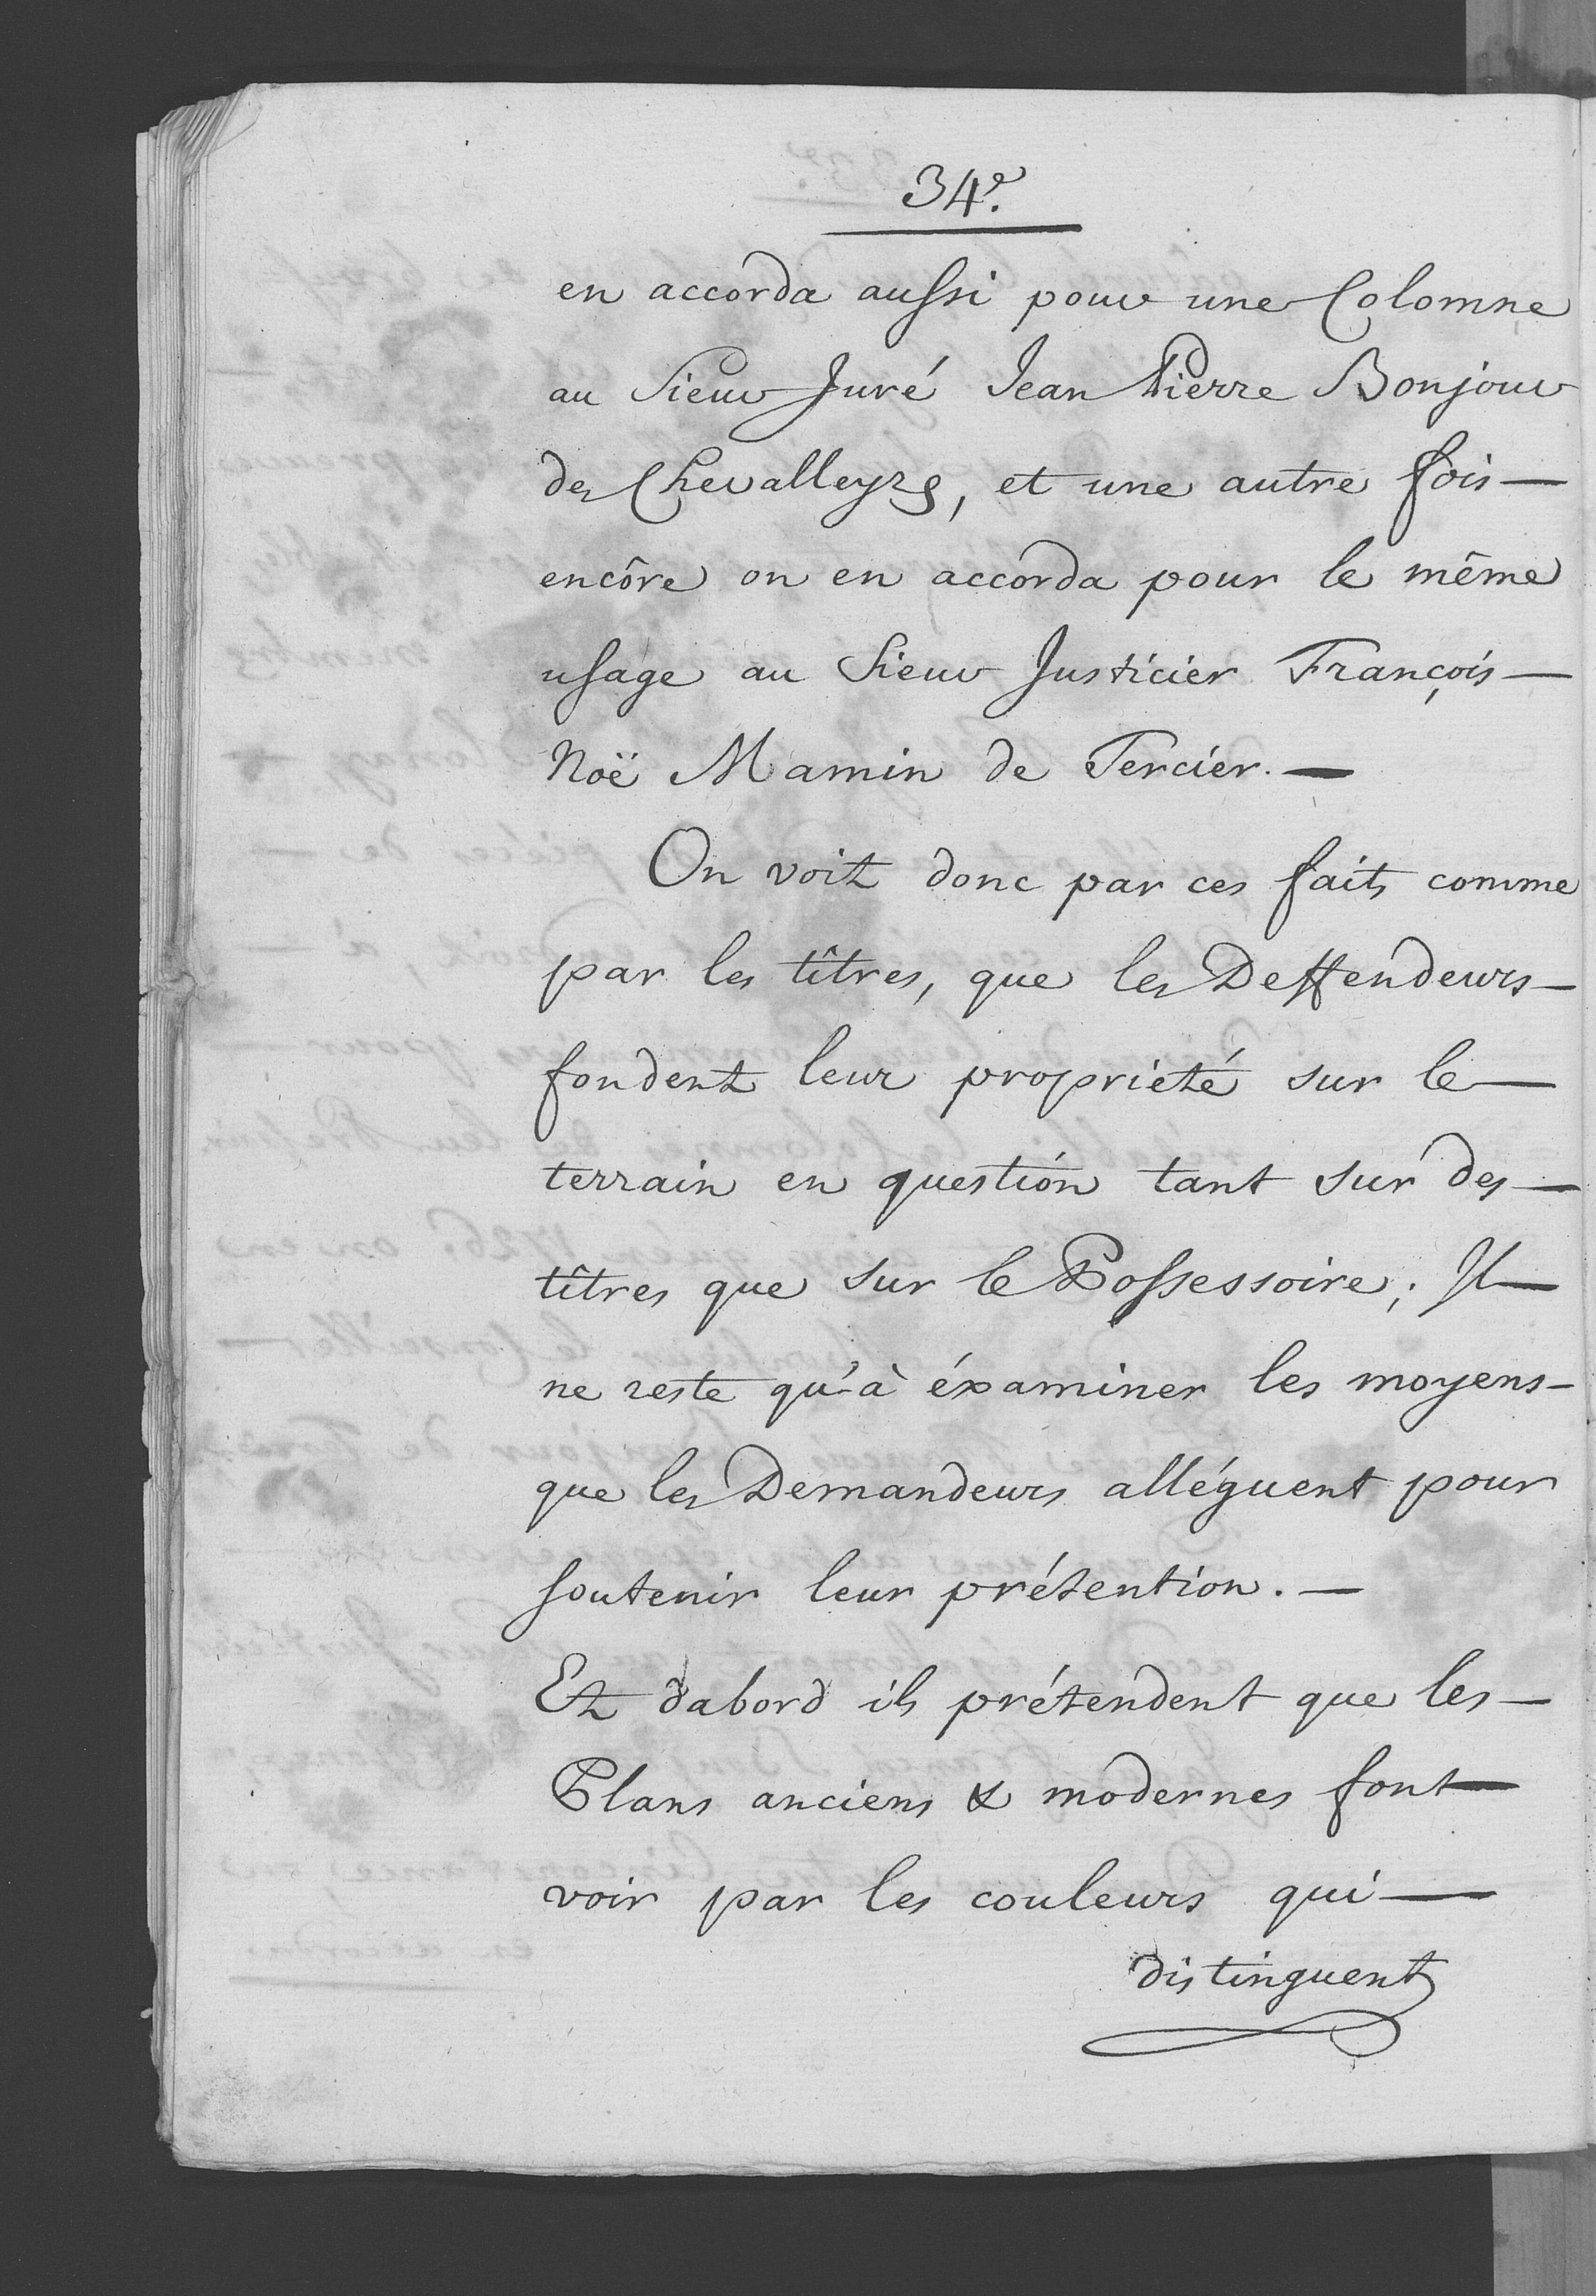 34e.
en accorda aussi pour une Colomne
au Sieur Juré Jean Pierre Bonjour
des Chevalleyrs, et une autre fois —
encôre on en accorda pour le même
usage au Sieur Justicier François —
Noë Mamin de Tercier. —
On voit donc par ces faits comme
par les tîtres, que les Deffendeurs —
fondent leur proprieté sur le —
terrain en question tant sur des —
tîtres que sur le Possessoire; Il —
ne reste qu'à éxaminer les moyens —
que les Demandeurs alléguent pour
soutenir leur prétention. —
Et dabord ils prétendent que les —
Plans anciens & modernes font —
voir par les couleurs qui —
distinguent